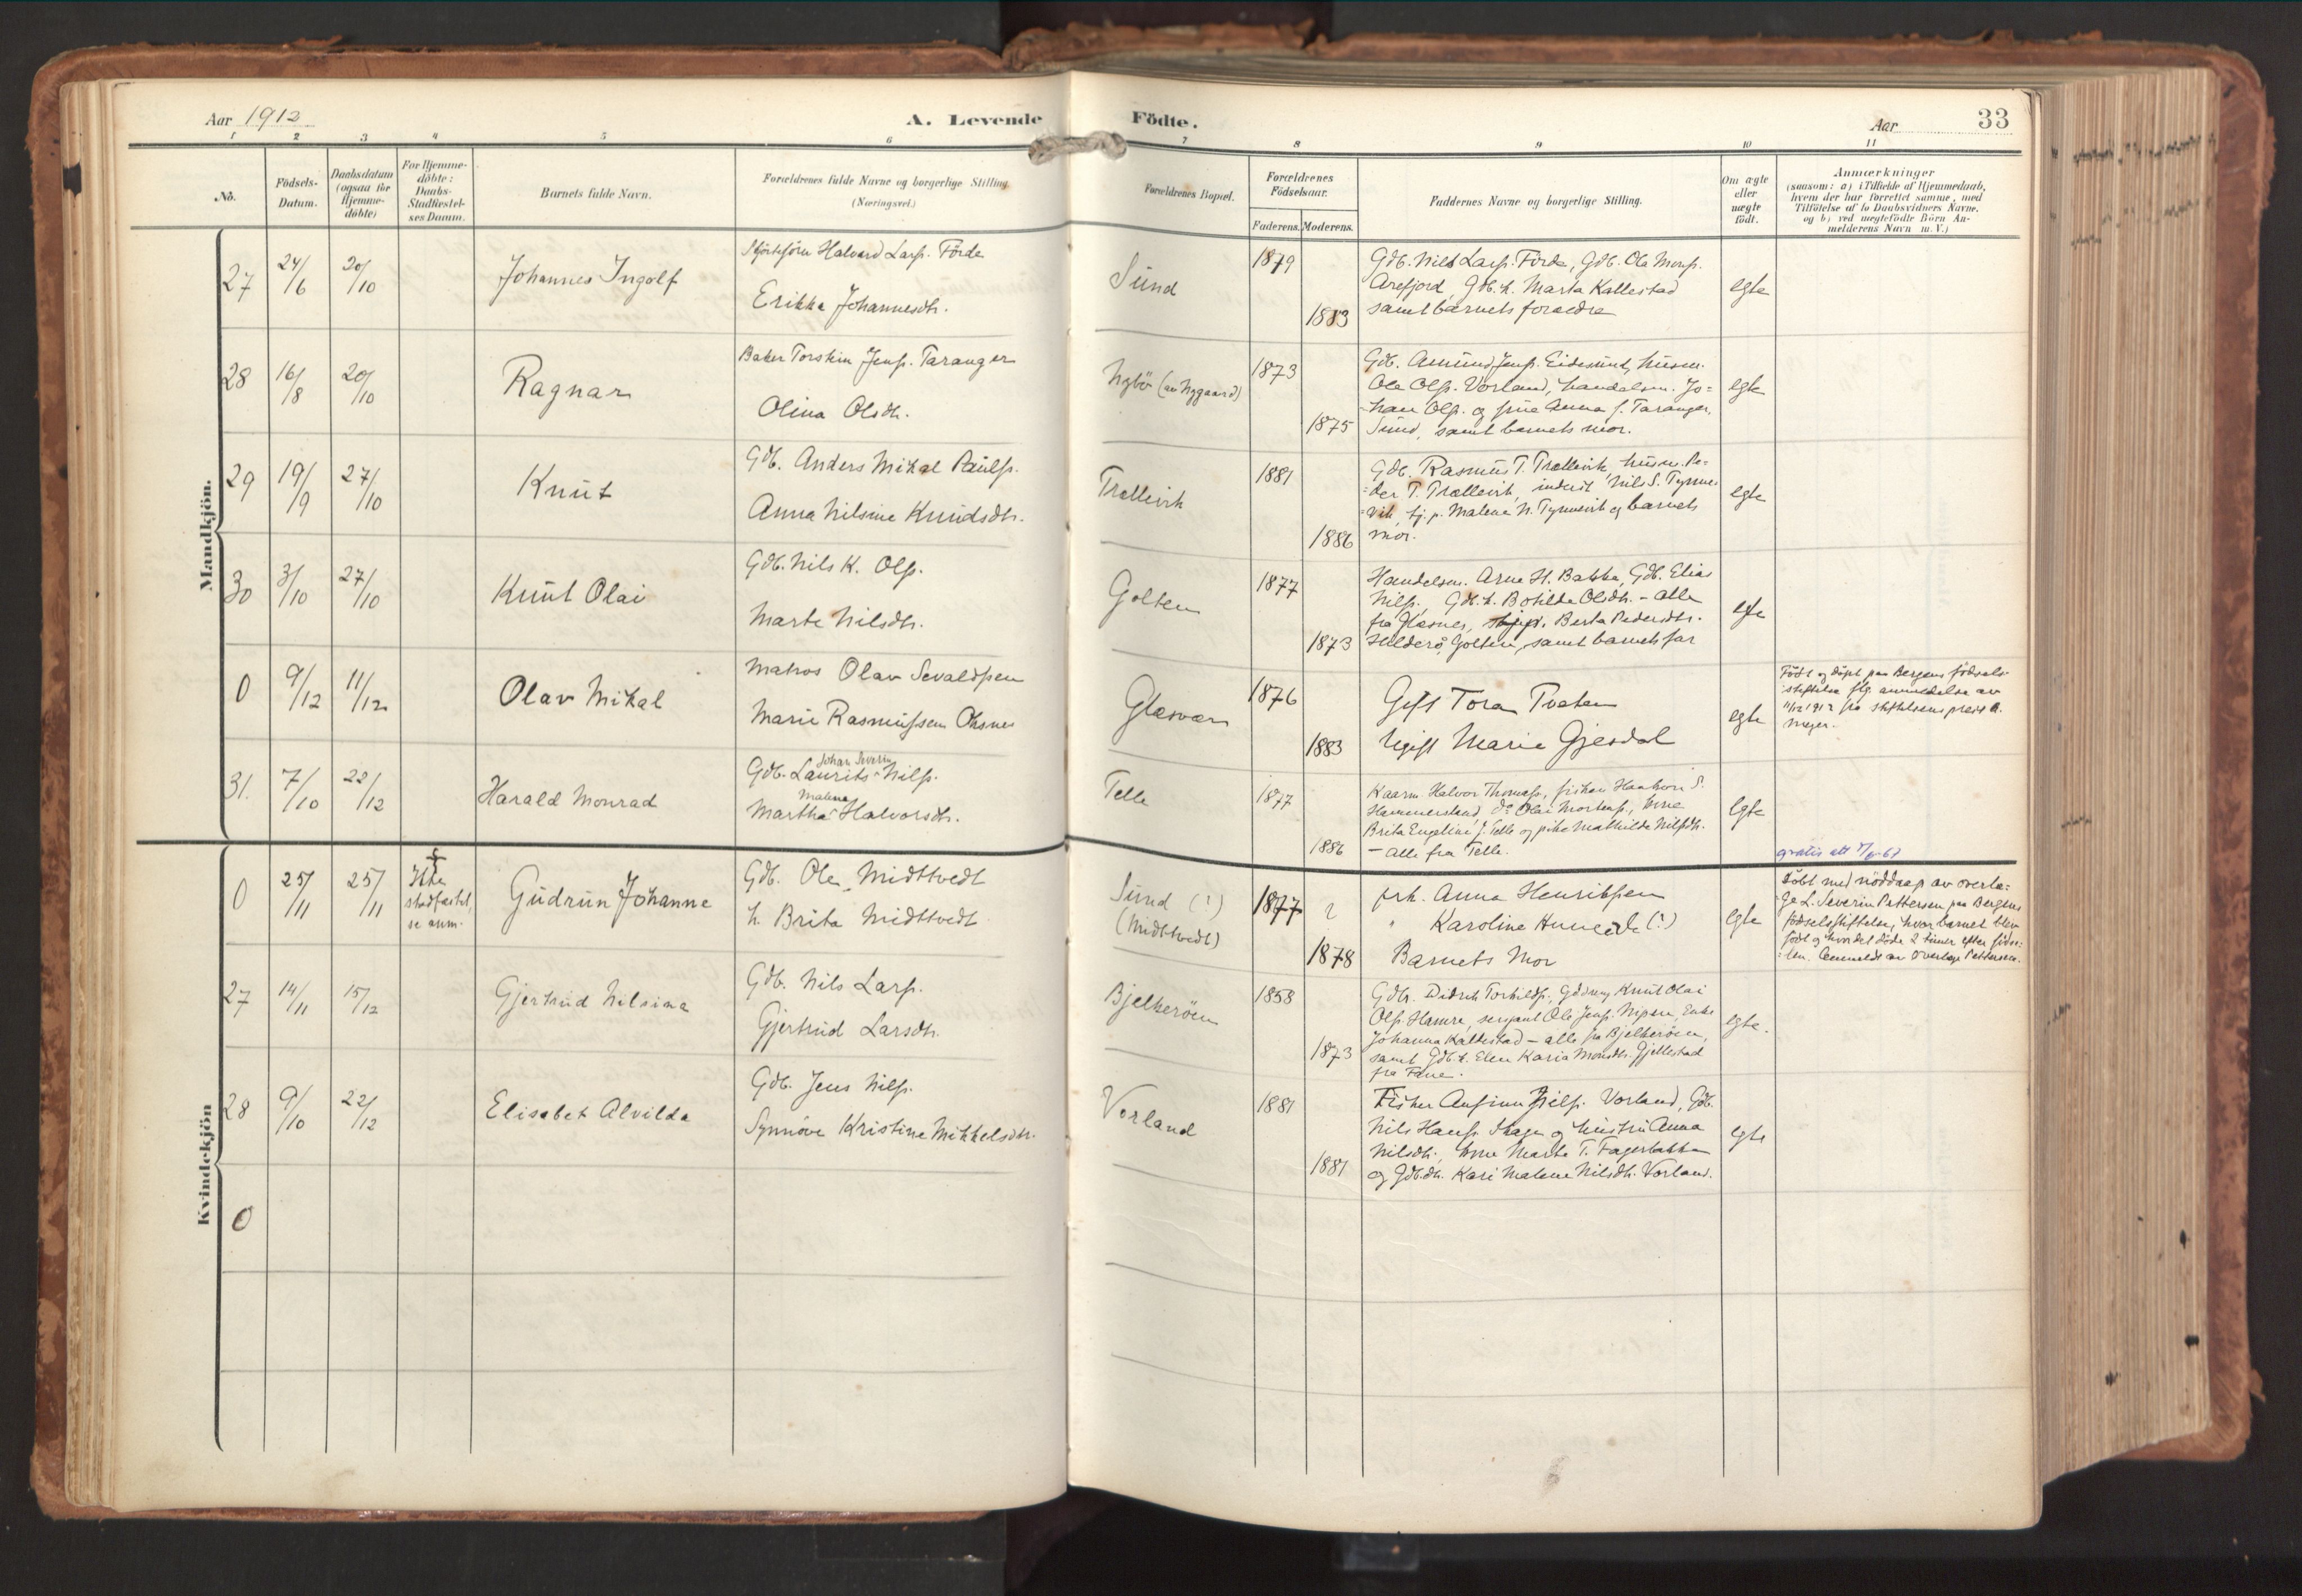 Aar 1912
A. Levende
Födte.
Aar
33
1 2 3 4 5 6 7 8 9 10 11
No.
Födsels-
Datum.
Daabsdatum
(ogsaa for
Hjemme-
döbte)
For Hjemme-
döbte:
Daabs-
Stadfæstel-
ses Datum.
Barnets fulde Navn.
Forældrenes fulde Navne og borgerlige Stilling.
(Næringsvei.)
Forældrenes Bopæl.
Forældrenes
Födselsaar.
Faderens. Moderens.
Faddernes Navne og borgerlige Stilling.
Om ægte
eller
uægte
födt.
Anmærkninger
(saasom: a) i Tilfælde af Hjemmedaab,
hvem der har forrettet samme, med
Tilföielse af to Daabsvidners Navne,
og b) ved uægtefödte Börn An-
melderens Navn m. V.)
Mandkjön.
27 24/6 20/10
Johannes Ingolf
Halvard Larss. Förde
Erikka Johannesdtr.
Sund
1879
1883
Gdb. Nils Larss. Förde, Gdb. Ola Monss.
Arefjord, Gdb.k. Marta Kallestad
samt barnets foreldre
egte
28 16/8 20/10
Ragnar
Baker Torstein Jenss. Taranger
Olina Olsdtr.
Nybö (av Nygaard)
1873
1875
Gdb. Amund Jenss. Eidesund, husm.
Ole Olss. Vorland, handelsm. Jo-
-han Olss. og frue Anna f. Taranger,
Sund, samt barnets mor.
egte
29 19/9 27/10
Knut
Gdb. Anders Mikal Paulss.
Anna Nilsine Knudsdtr.
Trællevik
1881
1886
Gdb. Rasmus T. Trællevik, husm. Pe-
-der T. Trællevik, inderst Nils S. Tyrne-
-vik, tj.p. Malene N. Tyrnevik og barnets
mor.
egte
30 3/10 27/10
Knut Olai
Gdb. Nils K. Olss.
Marte Nilsdtr.
Golten
1877
1873
Handelsm. Arne H. Bakka, Gdb. Elias
Nilss., Gdb.k. Botilda Olsdtr. - alle
fra Glesnes, Berta Pedersdtr.
Golten, samt barnets far
egte
0 9/12 11/12
Olav Mikal
Matros Olav Sevaldssen
Marie Rasmussen Oksnes
Glesvær
1876
1883
Gift Tora Tveten
Ugift Marie Gjesdal
egte
Födt og döpt paa Bergens födsels-
-stiftelse flg. anmeldelse av
11/12 1912 fra stiftelsens prest A.
Meyer.
31. 7/10 22/12
Harald Monrad
Johan Severin
Gdb. Laurits Nilss.
Malena
Martha Halvorsdtr.
Telle
1877
1886
Kaarm. Halvor Thomass., Haakon S.
Hammersland, do Olai Mortenss., kone
Brita Engeline f. Telle og pike Mathilde Nilsdtr.
- alle fra Telle.
egte
gratis att
Kvindekjön
0 25/11 25/11
Ikke
stadfæstet,
se anm.
Gudrun Johanne
Gdb. Ole Midttvedt
h. Brita Midttvedt
Sund (!)
(Midttvedt)
1877 ?
1878
frk. Anna Henrikssen
" Karoline (!)
Barnets Mor
egte
Döbt med nöddaap av overlæ-
-ge L. Severin Pettersen paa Bergens
födselsstiftelse, hvor barnet blev
födt og hvor det döde 2 timer efter födse-
-len. Anmeldt av overlæge Pettersen.
27 14/11 15/12
Gjertrud Nilsina
Gdb. Nils Larss.
Gjertrud Larsdtr.
Bjelkeröen
1858
1873
Gdb. Didrik Torkildss., Knut Olai
Olss. Hamre, sergeant Ole Jenss. Nipen, Enke
Johanna Kallestad - alle fra Bjelkeröen,
samt Gdb.k. Elen Karia Monsdtr. Gjellestad
fra Fane.
egte.
28 9/10 22/12
Elisabet Alvilda
Gdb. Jens Nilss.
Synnöve Kristine Mikkelsdtr.
Vorland
1881
1881
Fisker Anfinn Nilss. Vorland, Gdb.
Nils Hanss. Skage og hustru Anna
Nilsdtr., kone Marta T. Fagerbakke
og Gdb.dtr. Kari Malene Nilsdtr. Vorland.
egte
0